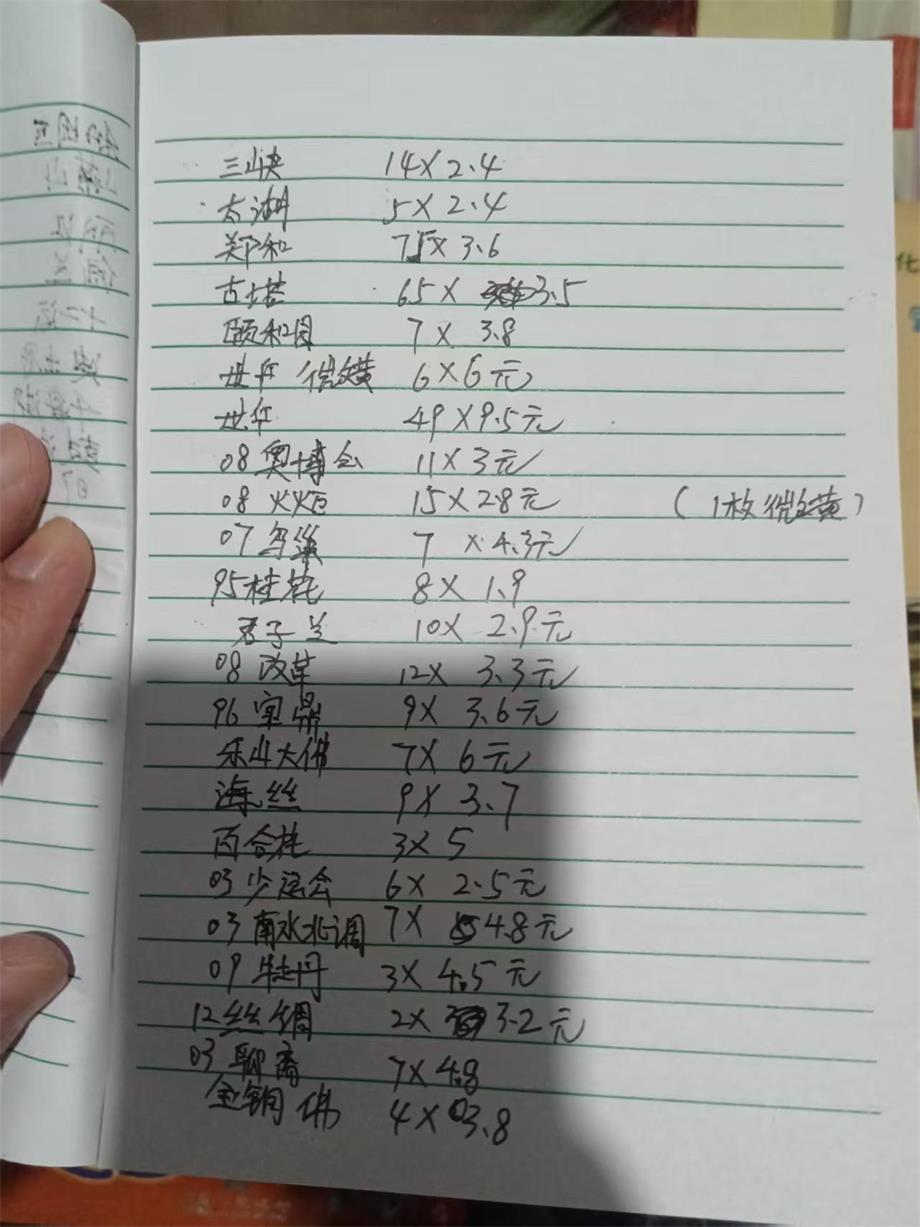 三峡 14×2.4
太湖 5×2.4
郑和 75×3.6
古塔 65× 3.5
颐和园 7×3.8
世纪 微黄 6×6元
世纪 49×9.5元
08奥博会 11×3元
08火炬 15×2.8元 (1枚微黄)
07鸟巢 7×4.3元
95桂花 8×1.9
君子兰 10×2.9元
08改革 12×3.3元
96宝鼎 9×3.6元
乐山大佛 7×6元
海丝 9×3.7
百合花 3×5
03少运会 6×2.5元
03南水北调 7×4.8元
09牡丹 3×4.5元
12丝绸 2×3.2元
03聊斋 7×4.8
金铜佛 4×3.8